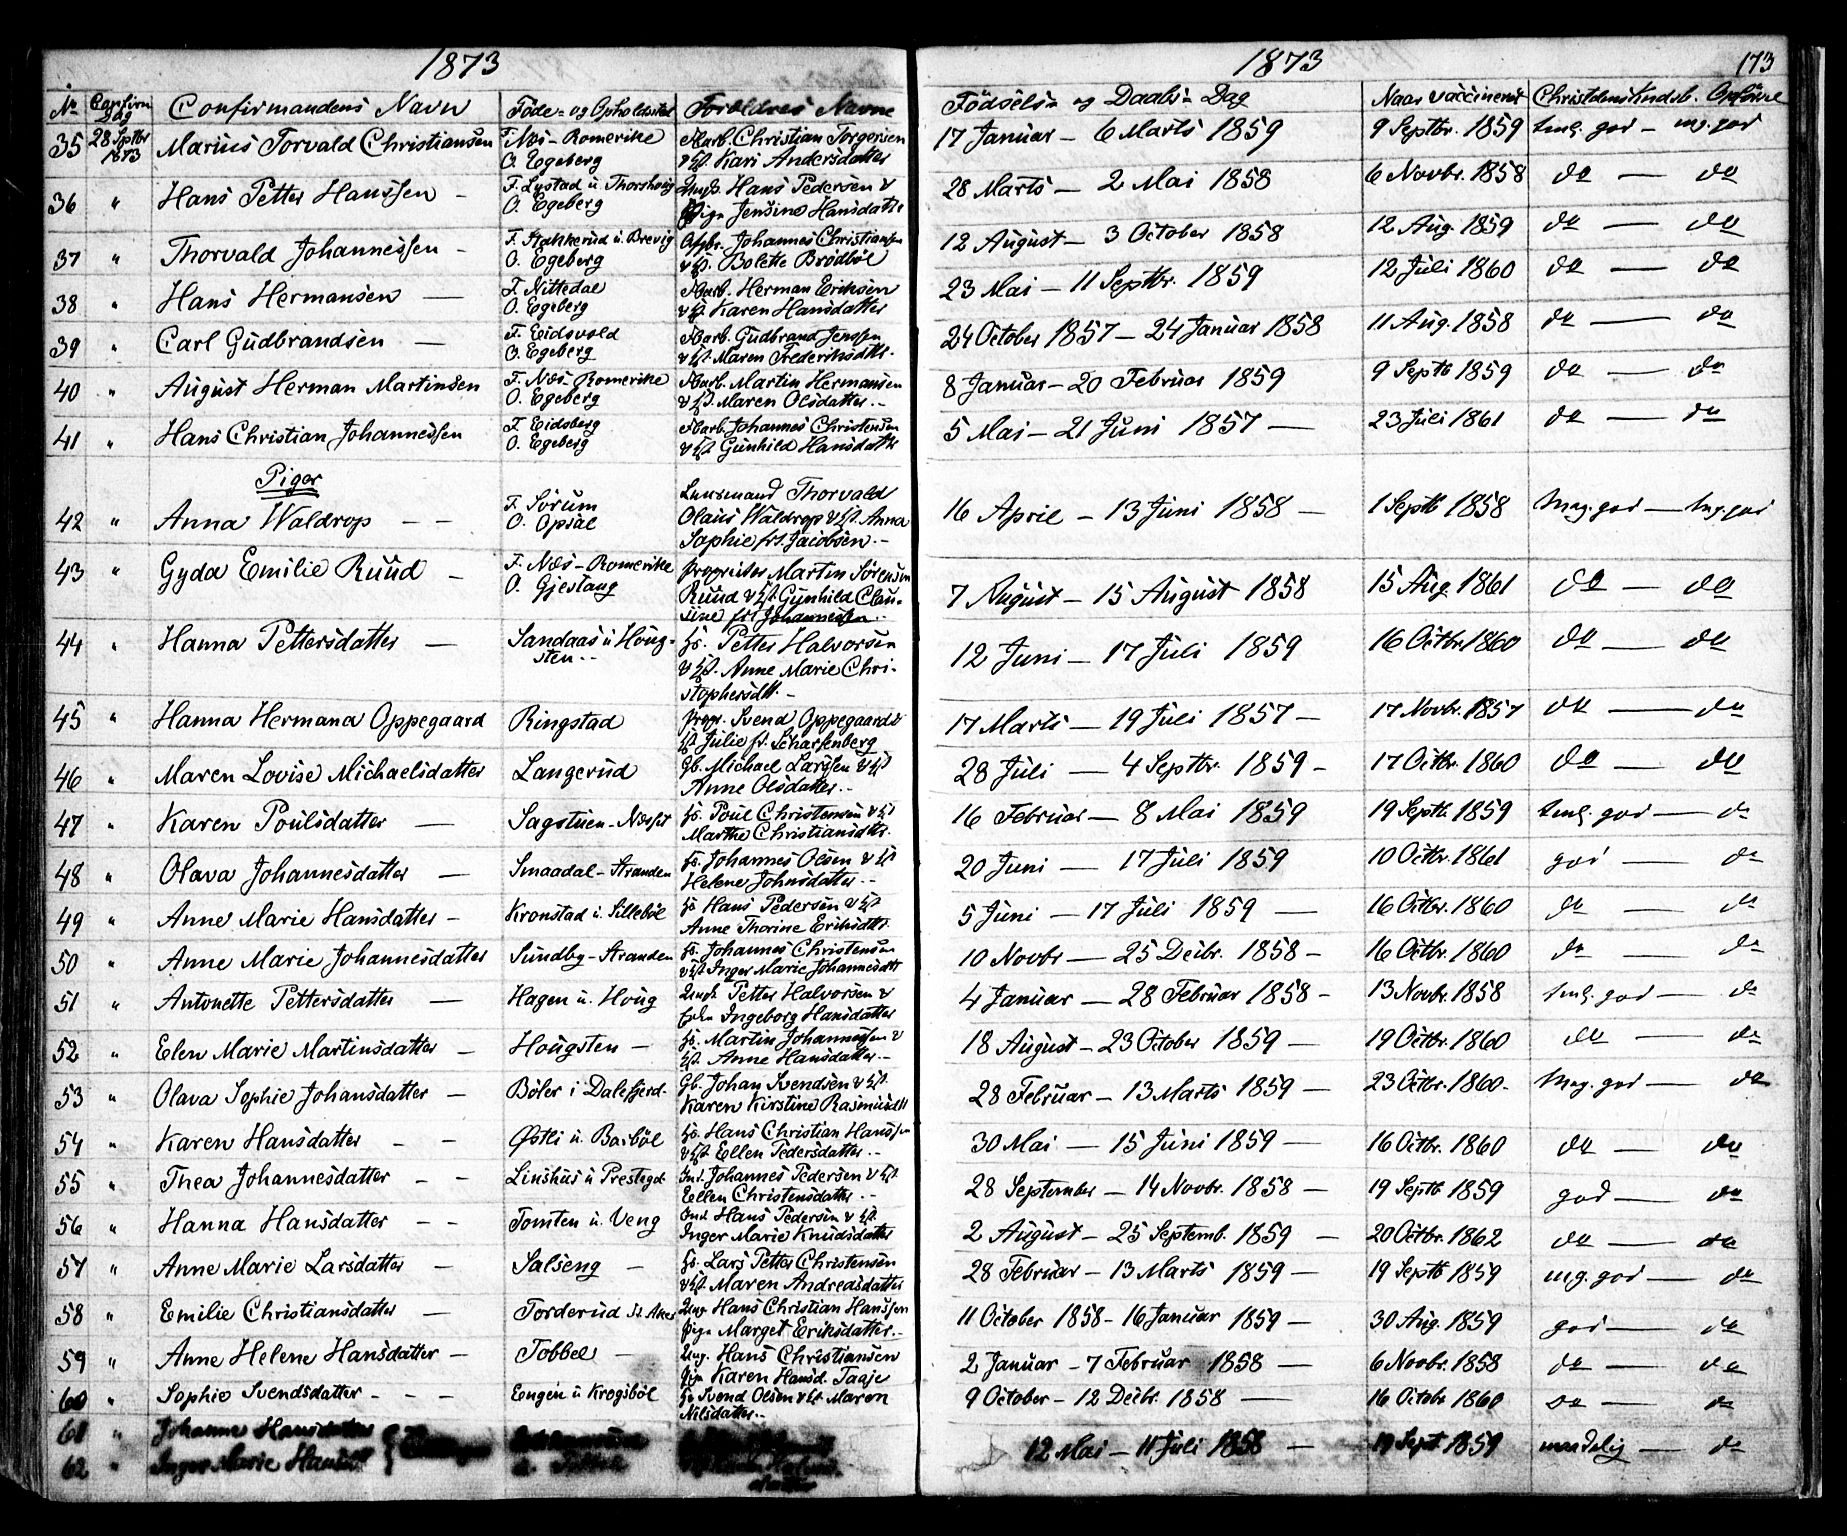 1873
1873
173
No
Confirm Dag
Confirmandens Navn
Føde- og Opholdssted
Forældres Navne
Fødsels- og Daabs- Dag
Naar vaccineret
Christdomskundsk. Opførsel
35 28 Septbr 1873 Marius Torvald Christiansen F. Næs-Romerike Harb. Christian Torgersen 17 Januar – 6 Marts 1859 9 Septbr. 1859 tmlg. god – mg. god
O. Egeberg & Hst. Kari Andersdatter
36 " Hans Petter Hanssen – F. Lystad u. Thorshoug Ungk. Hans Pedersen & 28 Marts – 2 Mai 1858 6 Novbr. 1858 do – do
O. Egeberg Pige Jensine Hansdatter
37 " Thorvald Johannessen – F. Stakkerud u. Brevig Johannes Christiansen 12 August – 3 October 1858 12 Aug. 1859 do – do
O. Egeberg & Hst. Bolette Brødbøl
38 " Hans Hermansen – F. Nittedal Harb. Herman Eriksen 23 Mai – 11 Septbr. 1859 12 Juli 1860 do – do
O. Egeberg & Hst. Karen Hansdatter
39 " Carl Gudbrandsen – F. Eidsvold Harb. Gudbrand Jenssen 24 October 1857 – 24 Januar 1858 11 Aug. 1858 do – do
O. Egeberg & Hst. Maren Frederiksdttr.
40 " August Herman Martinsen F. Næs-Romerike Harb. Martin Hermansen 8 Januar – 20 Februar 1859 9 Septb 1859 do – do
O. Egeberg & Hst. Maren Olsdatter –
41 " Hans Christian Johannessen F. Eidsberg Harb. Johannes Christensen 5 Mai – 21 Juni 1857 – 23 Juli 1861 do – do
O. Egeberg & Hst Gunhild Hansdattr
Piger
42 " Anna Waldrop – – F. Sørum Lensmand Thorvald 16 April – 13 Juni 1858 – 1 Septb 1858 Mag. god – mg. god
O. Opsal Olaus Waldrop & Hst. Anna
Sophie fr. Jacobsen –
43 " Gyda Emilie Ruud – F. Næs-Romerike proprietær Martin Sørensen 7 August – 15 August 1858 15 Aug 1861 do – do
O. Gjestang Ruud & Hst. Gunhild Clau-
sine fr. Johannessen
44 " Hanna Pettersdatter – Sandaas u Houg- Hs. Petter Halvorsen 12 Juni – 17 Juli 1859 16 Octbr. 1860 do – do
sten – & Hst. Anne Marie Chri-
stophersdtt. –
45 " Hanna Hermana Oppegaard Ringstad propr. Svend Oppegaard & 17 Marts – 19 Juli 1857 – 17 Novbr. 1857 do – do
Hst Julie f. Scharfenberg
46 " Maren Lovise Michaelsdatter Langerud Gb. Michael Larssen & Hst 28 Juli – 4 Septbr. 1859 – 17 Octbr. 1860 do – do
Anne Olsdatter –
47 " Karen Poulsdatter – Sagstuen-Næsset Hs. Poul Christensen & Hst 16 Februar – 8 Mai 1859 19 Septb 1859 tmlg. god – do
Marthe Christiansdttr.
48 " Olava Johannesdatter – Smaadal-Stranden Hs. Johannes Olsen & Hst 20 Juni – 17 Juli 1859 10 Octbr. 1861 god – do
Helene Johnsdatter –
49 " Anne Marie Hansdatter – Kronstad u. Sillebøl Hs Hans Pedersen & Hst 5 Juni – 17 Juli 1859 – 16 Octbr. 1860 do – do
Anne Thorine Eriksdtt.
50 " Anne Marie Johannesdatter Sundby-Stranden Hs. Johannes Christensen 10 Novbr – 25 Decbr. 1858 – 16 Octbr. 1860 do – do
& Hst Inger Marie Johannesdtt
51 " Antonette Pettersdatter – Hagen u. Houg Ungk. Petter Halvorsen & 4 Januar – 28 Februar 1858 – 13 Novbr. 1858 tmlg. god – do
Ingeborg Hansdatter
52 " Elen Marie Martinsdatter – Hougsten – Hs. Martin Johannessen & 18 August – 23 October 1859 – 19 Octbr. 1860 do – do
Hst. Anne Hansdatter –
53 " Olava Sophie Johansdatter – Bøler i Dalefjerd. Gb. Johan Svendsen & Hst. 28 Februar – 13 Marts 1859 – 23 Octbr. 1860 – Mag. god – do
Karen Kirstine Rasmusdtt
54 " Karen Hansdatter – – Østli u. Barbøl Hs. Hans Christian Hanssen 30 Mai – 15 Juni 1859 – 16 Octbr. 1860 do – do
& Hst Ellen Pedersdatter –
55 " Thea Johannesdatter – – Linshus u Prestegd. Ind. Johannes Pedersen & Hst. 28 September – 14 Novbr. 1858 – 19 Septb 1859 god – do
Ellen Christensdatter –
56 " Hanna Hansdatter – – Tomten u. Veng Ind. Hans Pedersen & Hst. 2 August – 25 Septemb. 1859 – 20 Octbr. 1862 do – do
Inger Marie Knudsdatter
57 " Anne Marie Larsdatter – Salseng – Hs. Lars Petter Christensen 28 Februar – 13 Marts 1859 – 19 Septb 1859 mg. god – do
& Hst. Maren Andreasdatter
58 " Emilie Christiansdatter – Torderud Ungk. Hans Christian Hanssen 11 October 1858 – 16 Januar 1859 – 30 Aug. 1859 god – do
Pige Marget Eriksdatter –
59 " Anne Helene Hansdatter – Tobbel – Ung. Hans Christiansen 2 Januar – 7 Februar 1858 – 6 Novbr. 1858 do – do
Pige Karen Hansd. Taaje
60 " Sophie Svendsdatter – – – Engen u Krogsbøl Hs Svend Olsen & Hst. Maren 9 October – 12 Decbr. 1858 – 16 Octobr 1860 do – do
Nilsdatter –
61 " Johanne Hansdatter
62 " Inger Marie 12 Mai – 11 Juli 1858 – 19 Sept. 1859 maadelig – do